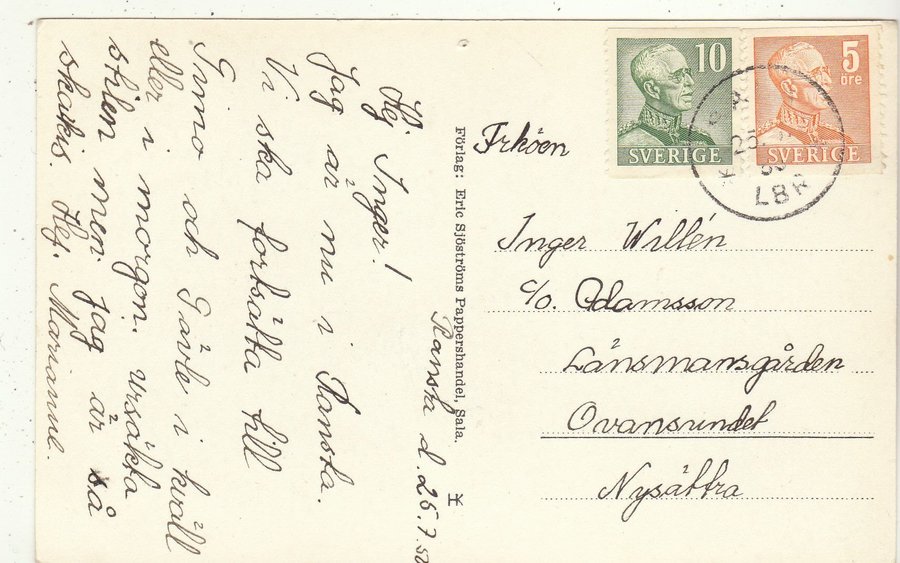 Ransta d. 25.7.52
Hej Inger!
Jag är nu i Ransta.
Vi ska fortsätta till
Grimo och Gävle i kväll
eller i morgon. ursäkta
stilen men jag är så
skakis. Hej. Marianne.
Förlag: Eric Sjöströms Pappershandel, Sala.
10
SVERIGE
5
öre
SVERIGE
25
LBR
Fröken
Inger Willén
c/o. Adamsson
Länsmansgården
Ovansundet
Nysättra